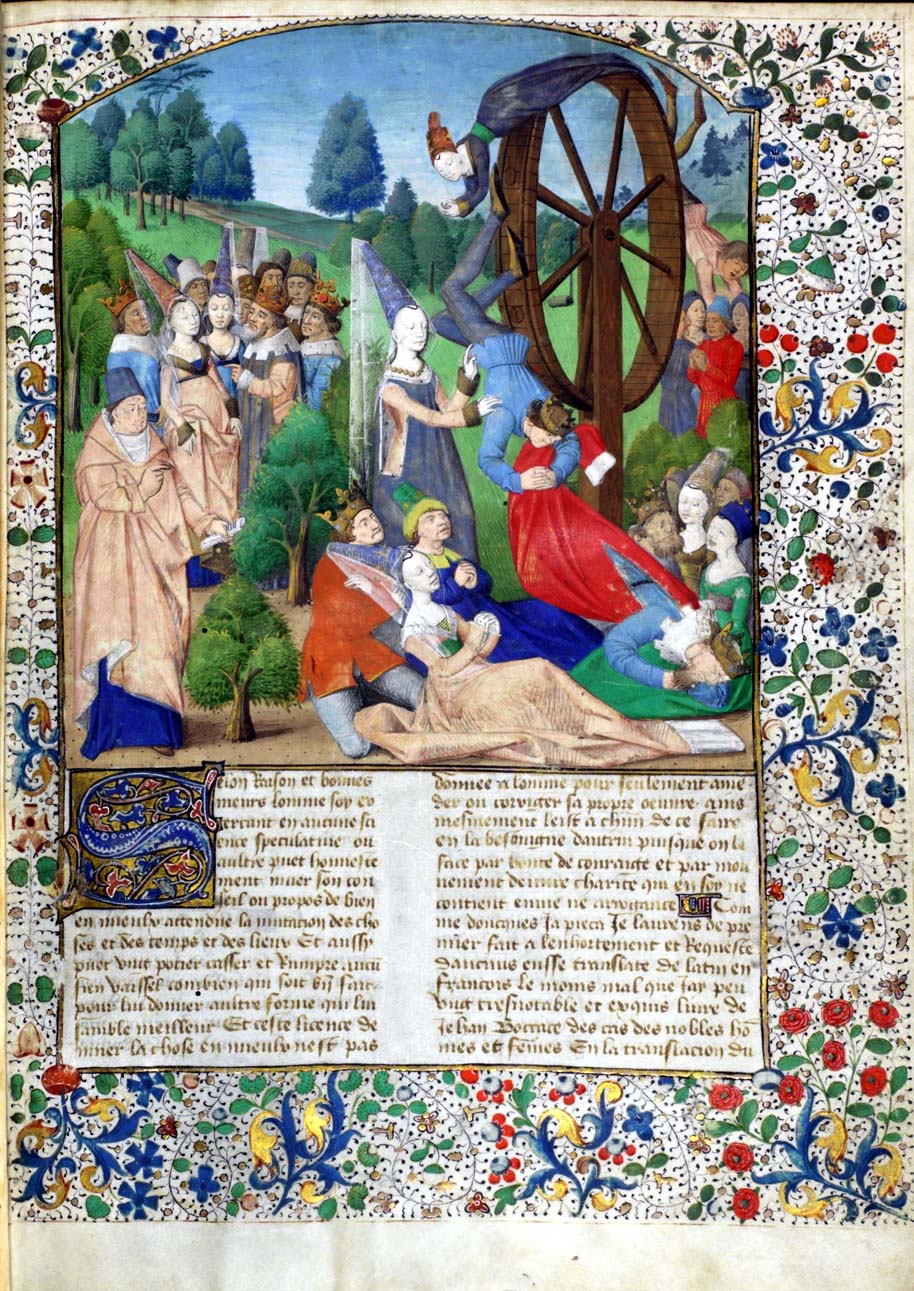 Selon Raison et bonnes
meurs lomme soy ex
ercant en aucune sci
ence speculatiue ou
aultre puet honneste
ment muer son con
seil ou propos de bien
en mieulx attendue la mutation des cho
ses et des temps et des lieux Et aussy
puet vng potier casser et Rompre aucū
sien vaissel combien qui soit bñ fait
pour lui donner aultre forme qui lui
samble meilleur Et ceste licence de
muer la chose en mieulx nest pas
donnee a lomme pour seulement ame
der ou corriger sa propre oeuure ains
mesmement leist a chūn de ce faire
en la besoingne dautrui puisque on la
face par bonte de couraige et par mou
uement de vraie charite qui en soy ne
contient enuie ne arrogance Com
me doncques Ja pieca Je laurens de pre
mier fait a lenhortement et Requeste
daucuns eusse translate de latin en
francois le moins mal que Jay peu
vng tresnotable et exquis liure de
Jehan Boccace des cas des nobles hō
mes et femes En la translacion du